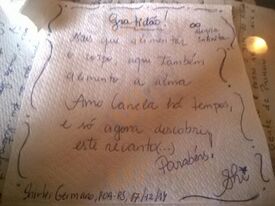 Gratidão!
Mais que alimentar
o corpo, aqui também
alimento a alma
Amo Canela há tempos,
e só agora descobri
este recanto (...)
Parabéns,
Shi
Shirlei Germano, POA-RS, 17/12/18